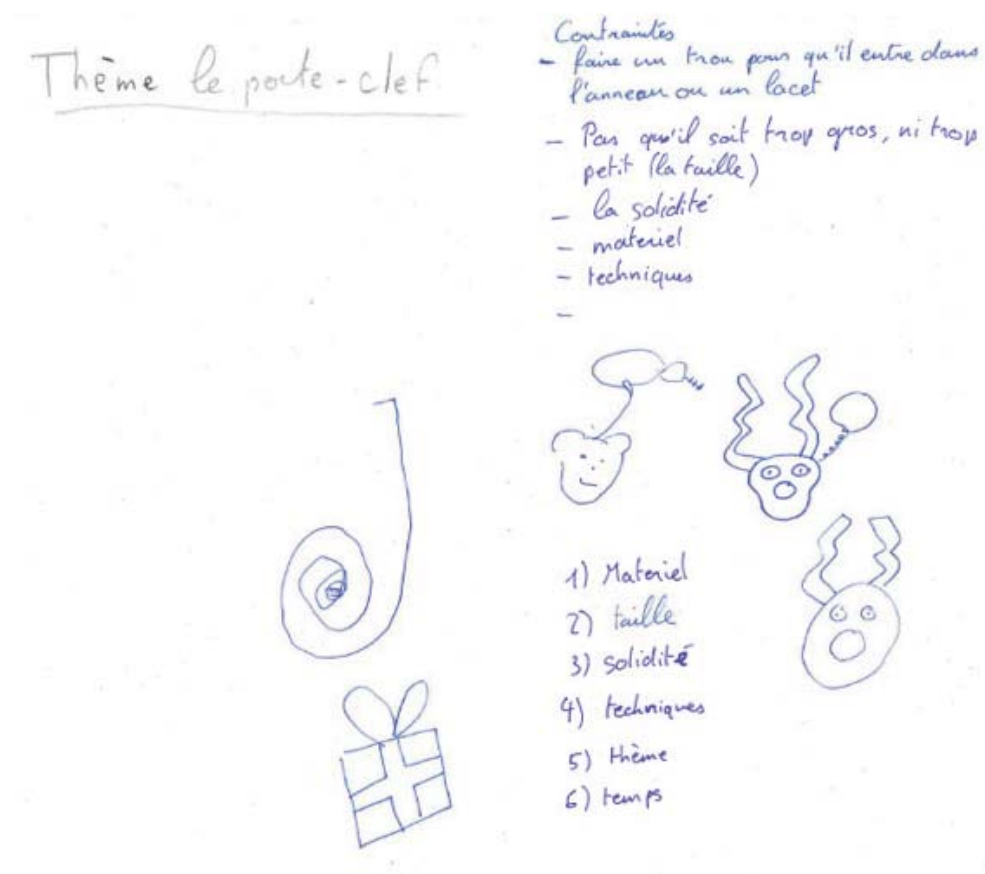 Thème le porte-clef.
Contraintes
- faire un trou pour qu'il entre dans
l'anneau ou un lacet
- Pas qu'il soit trop gros, ni trop
petit (la taille)
- la solidité
- materiel
- techniques
-
1) Materiel
2) taille
3) solidité
4) techniques
5) thème
6) temps